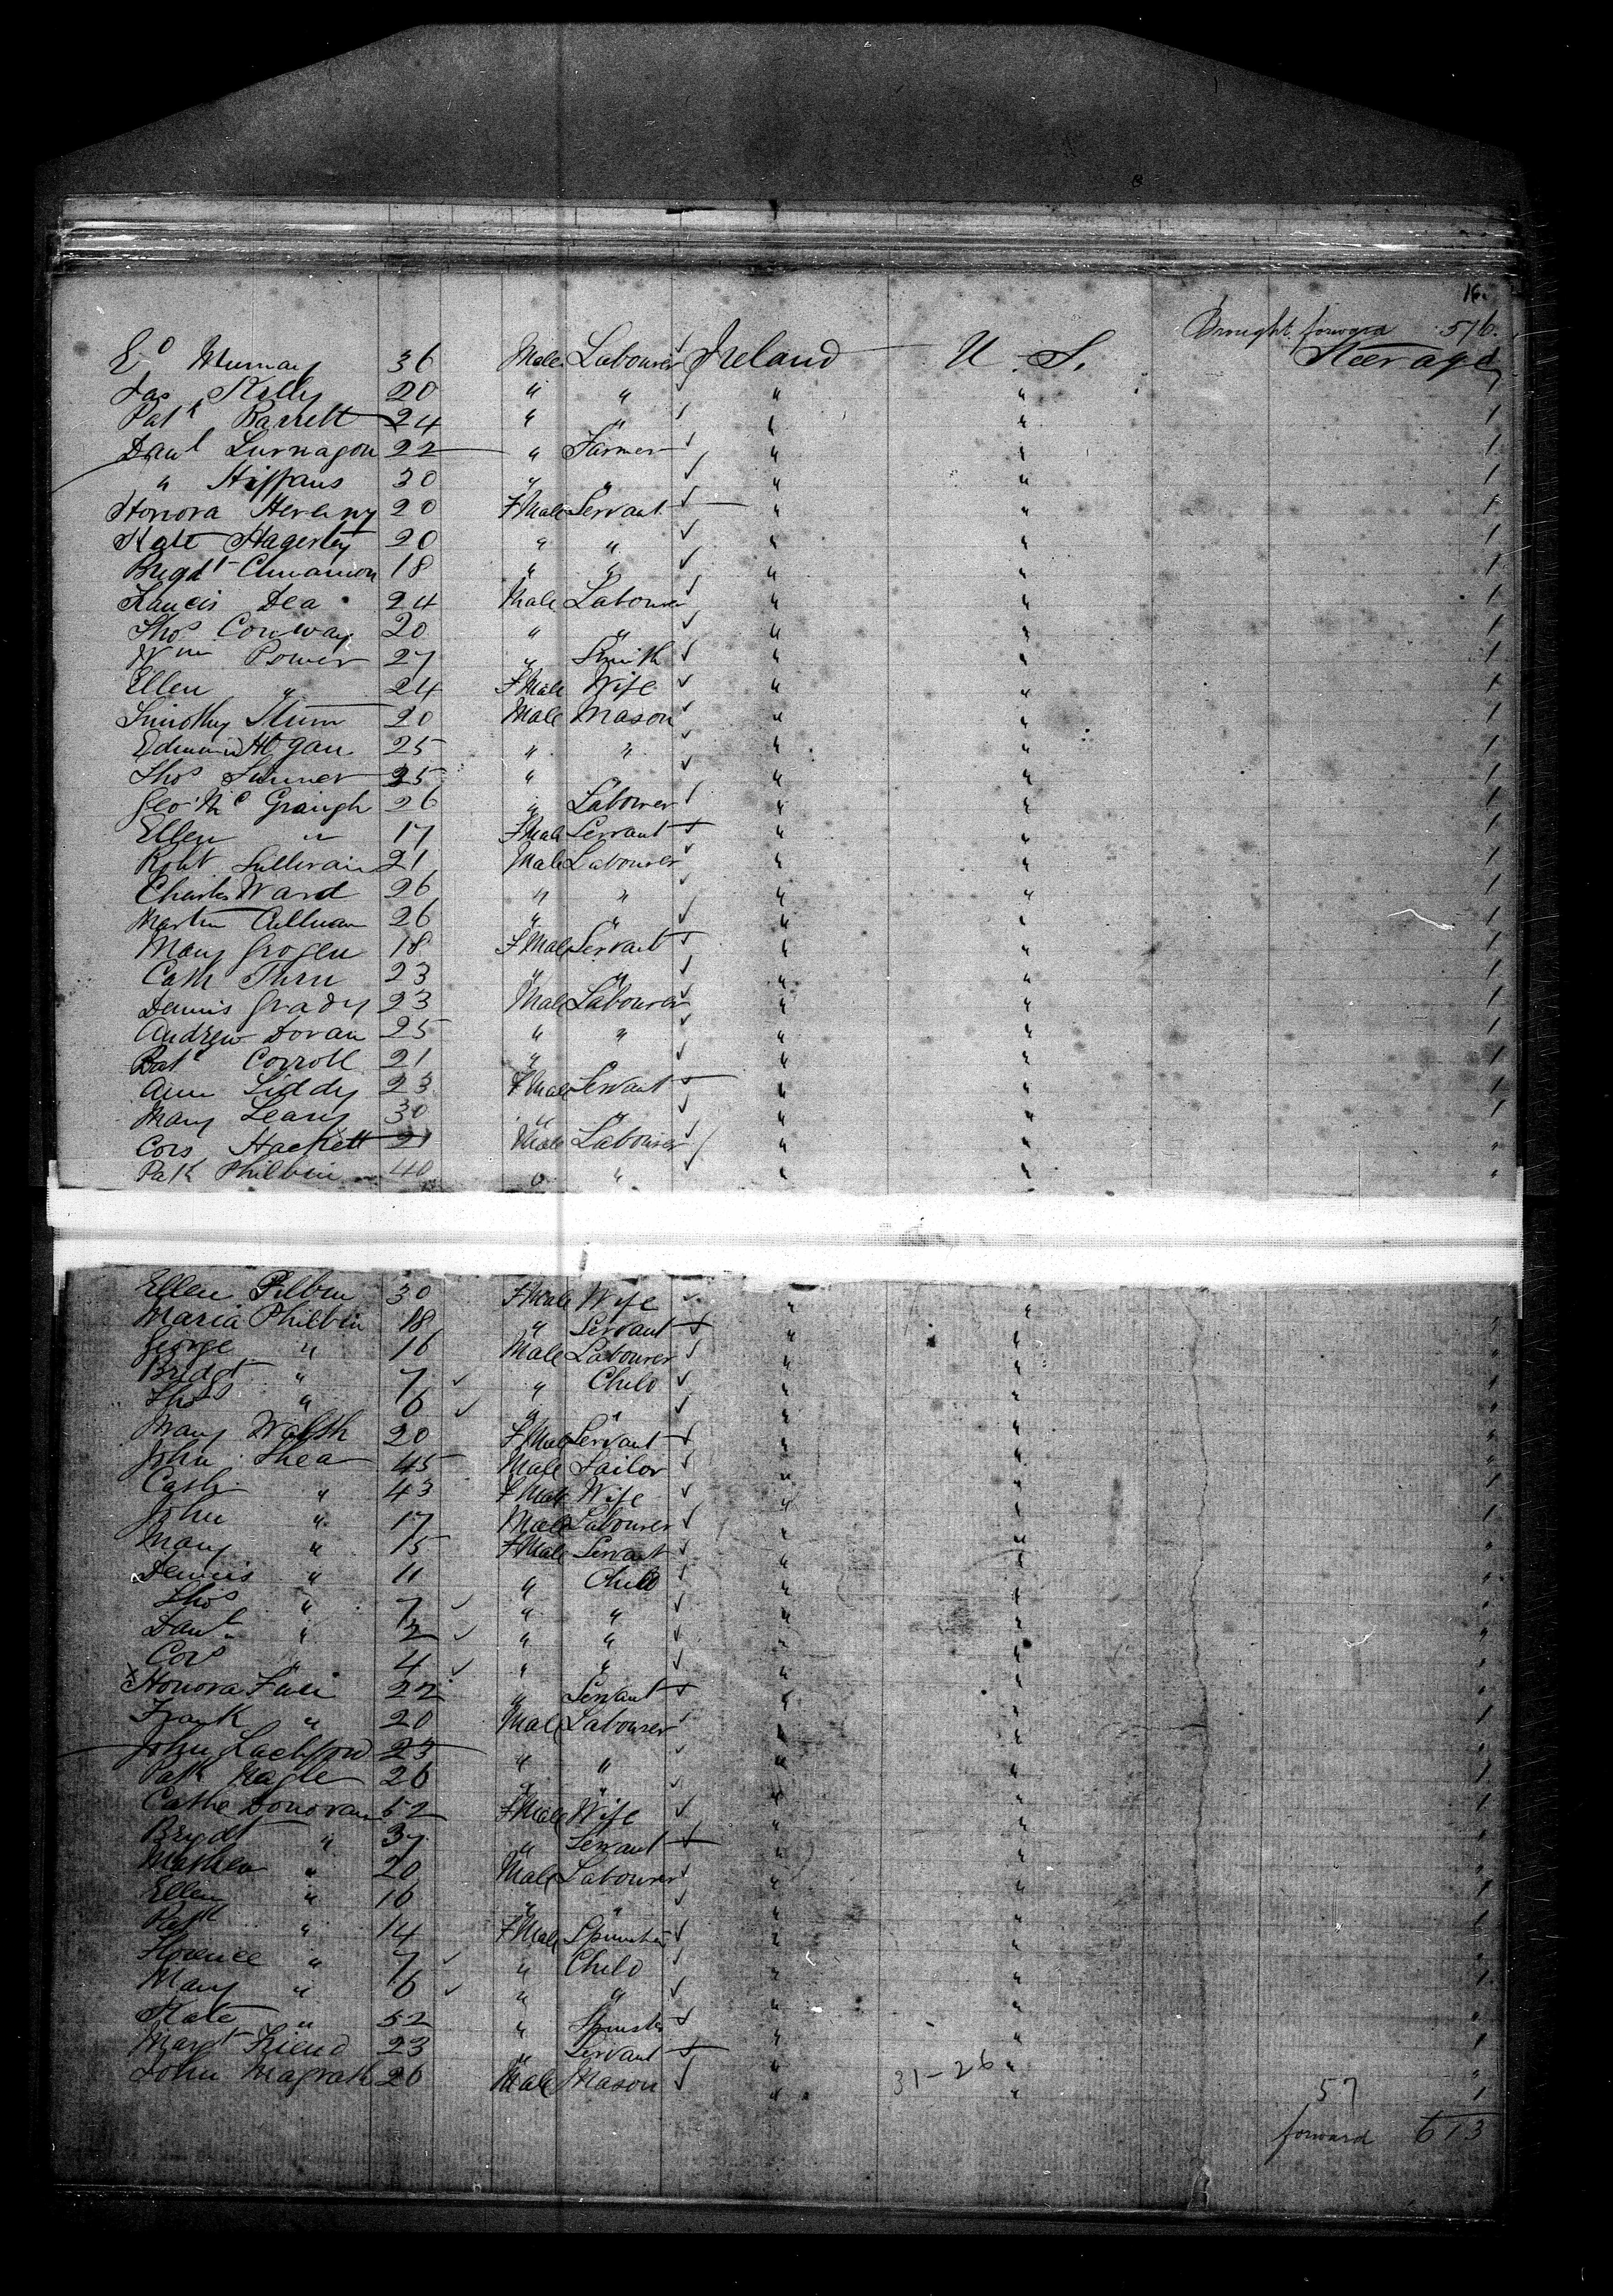 16.
Brought forward 576.
Ed Murray 36 Male Labourer Ireland U. S. Steerage
Jas Kelly 20 " " " "
Patk Barrett 24 " " " " 1
Danl 22 " Farmer " " 1
" 30 " " " " 1
Honora 20 FMale Servant " " 1
Kate Hagerty 20 " " " " 1
Bregdt 18 " " " " 1
Francis Dea 24 Male Labourer " " 1
Thos Conway 20 " " " " 1
Wm Power 27 " Smith " " 1
Ellen " 24 FMale Wife " " 1
Timothy 20 Male Mason " " 1
Edmund Hogan 25 " " " " 1
Thos 25 " " " " 1
Geo Mc 26 " Labourer " " 1
Ellen " 17 FMale Servant " " 1
Robt Sullivan 21 Male Labourer " " 1
Charles Ward 26 " " " " 1
Martin Cullinan 26 " " " " 1
Mary Grogen 18 FMale Servant " " 1
Cath 23 " " " " 1
Dennis Grady 23 Male Labourer " " 1
Andrew Doran 25 " " " "
Patk Corroll 21 " " " " 1
Ann Liddy 23 FMale Servant " " 1
Mary Leary 30 " " " " 1
Cors Hackett 21 Male Labourer " " "
Patk Philbin 40 " " " " "
Ellen Pilbin 30 FMale Wife " "
Maria Philbin 18 " Servant " " "
George " 16 Male Labourer " " "
Bridgt " 7 " Child " " 1
Thos " 6 " " " " 1
Mary Walsh 20 FMale Servant " " "
John Shea 45 Male Tailor " " "
Cath " 43 FMale Wife " " 1
John " 17 Male Labourer " " 1
Mary " 15 FMale Servant " " "
Dennis " 11 " Child " " "
Thos " 7 " " " " "
Danl " 2 " " " " "
Cors " 4 " " " " 1
x Honora 22 " Servant " " "
Frank " 20 Male Labourer " " 1
John 23 " " " " "
Patk Nagle 26 " " " " 1
Cathe Donovan 52 FMale Wife " " 1
Brydt " 37 " Servant " " 1
Mathew " 20 Male Labourer " " 1
Ellen " 16 " " " " 1
Patk " 14 FMale Spinster " " 1
Florence " 7 " Child " " "
Mary " 6 " " " " 1
Kate " 52 " Spinster " " "
Margt Friend 23 " Servant " " 1
John Magrath 26 Male Mason " " 1
31-26
57
forward 613